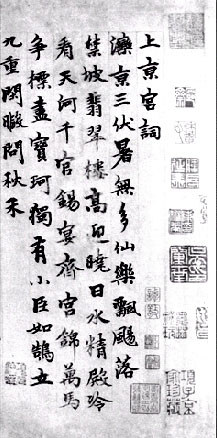 上京宮詞
灤京三伏暑無多仙樂飄颺落
禁坡翡翠樓高迎曉日水精殿冷
看天河千官錫宴齊宮錦萬馬
争標盡寶珂獨有小臣如鵠立
九重閑暇問秋禾